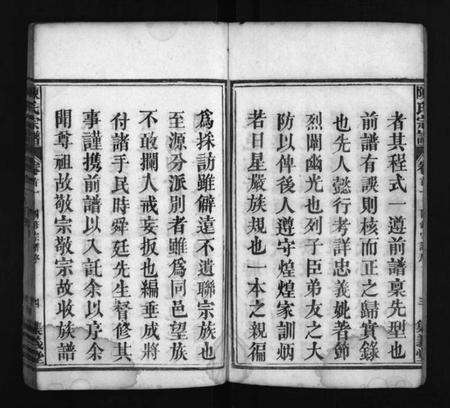 者其程式一遵前譜稟先型也
前譜有誤則核而正之歸實錄
也先人懿行考詳忠義姚著節
烈闡幽光也列子臣弟友之大
防以俾後人遵守煌煌家訓炳
若日星嚴族規也一本之親徧
為採訪雖僻遠不遺聯宗族也
至源分派別者雖為同邑望族
不敢攔入戒妄扳也編垂成將
付諸手民時舜廷先生督修其
事謹携前譜以入託余以序余
聞尊祖故敬宗敬宗故收族譜